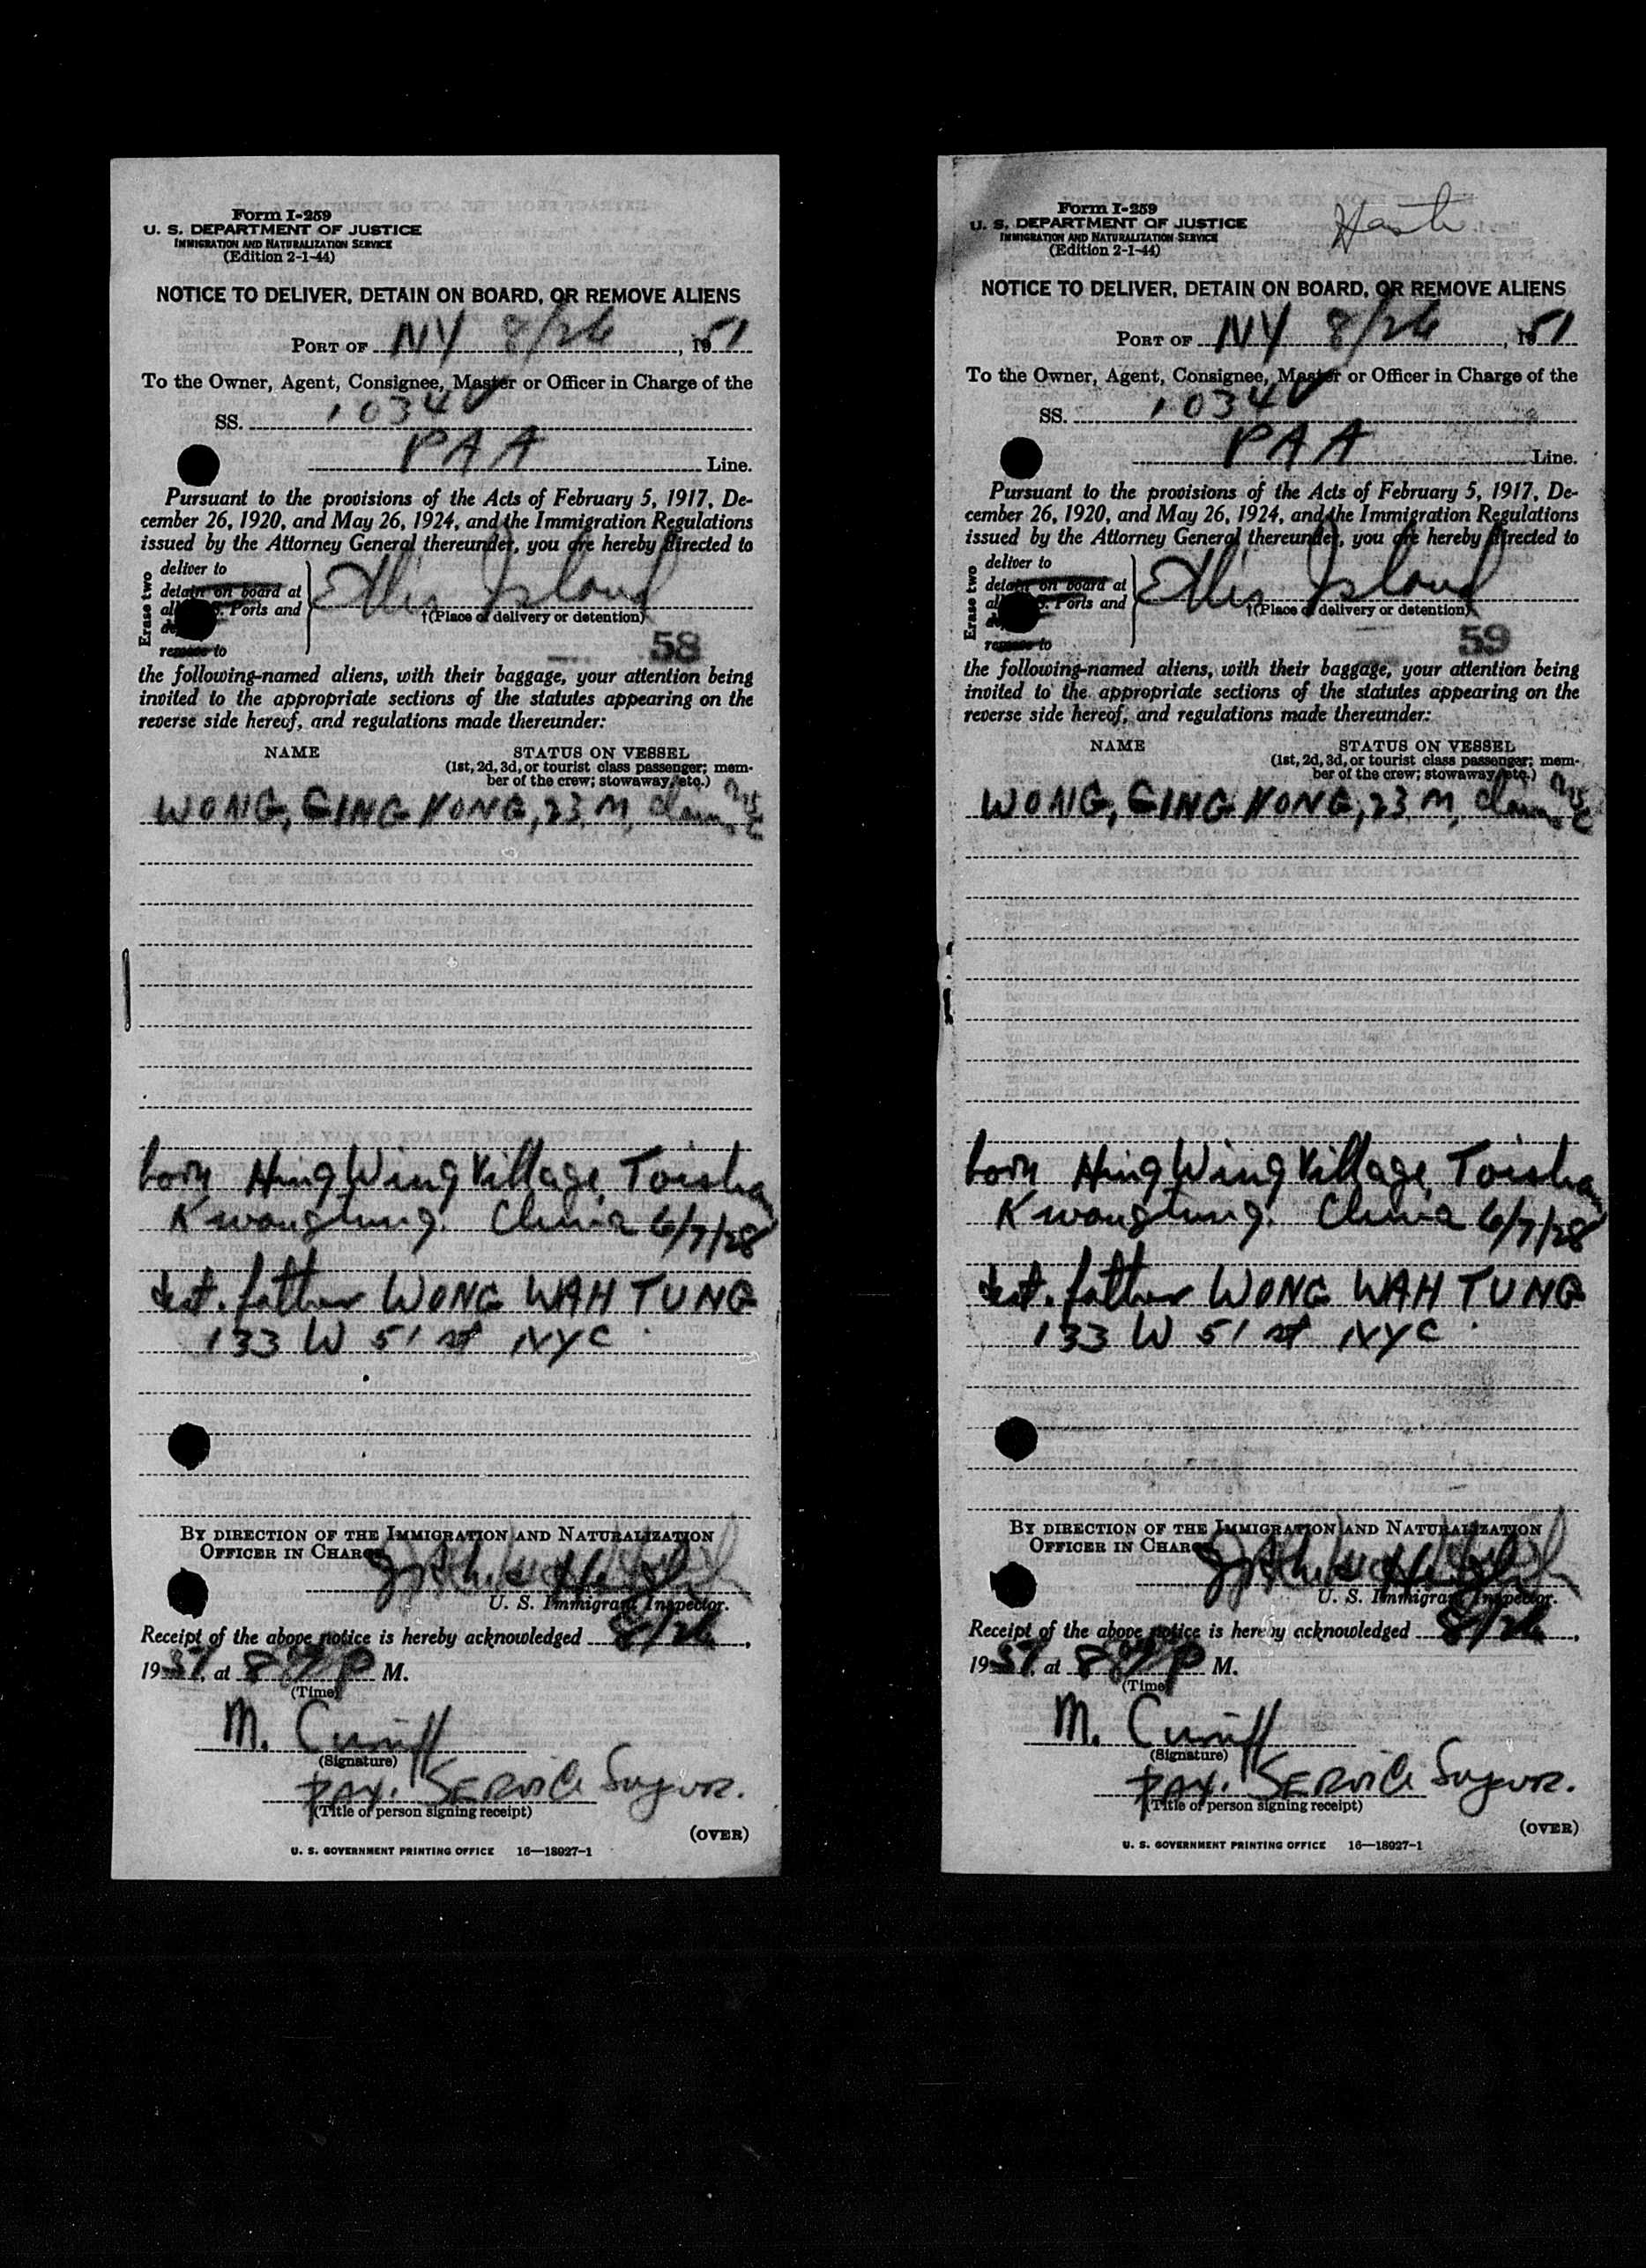 Form I-259
U. S. DEPARTMENT OF JUSTICE
IMMIGRATION AND NATURALIZATION SERVICE
(Edition 2-1-44)
NOTICE TO DELIVER, DETAIN ON BOARD, OR REMOVE ALIENS
PORT OF NY 8/26, 1951
To the Owner, Agent, Consignee, Master or Officer in Charge of the
SS. 1034V
PAA Line.
Pursuant to the provisions of the Acts of February 5, 1917, De-
cember 26, 1920, and May 26, 1924, and the Immigration Regulations
issued by the Attorney General thereunder, you are hereby directed to
Erase two
deliver to
detain on board at
Ports and
remove to
Ellis Island
†(Place of delivery or detention)
58
the following-named aliens, with their baggage, your attention being
invited to the appropriate sections of the statutes appearing on the
reverse side hereof, and regulations made thereunder:
NAME STATUS ON VESSEL
(1st, 2d, 3d, or tourist class passenger; mem-
ber of the crew; stowaway, etc.)
WONG, GING KONG, 23, M, claims
born Hing Wing Village, Toishan
Kwangtung. China 6/7/28
dest. father WONG WAH TUNG
133 W 51 st NYC
BY DIRECTION OF THE IMMIGRATION AND NATURALIZATION
OFFICER IN CHARGE
U. S. Immigrant Inspector.
Receipt of the above notice is hereby acknowledged 8/26,
1951, at P M.
(Time)
M.
(Signature)
PAX. SERVICE Supvr.
(Title of person signing receipt)
(OVER)
U. S. GOVERNMENT PRINTING OFFICE 16—18027-1
Form I-259
U. S. DEPARTMENT OF JUSTICE
IMMIGRATION AND NATURALIZATION SERVICE
(Edition 2-1-44)
NOTICE TO DELIVER, DETAIN ON BOARD, OR REMOVE ALIENS
PORT OF NY 8/26, 1951
To the Owner, Agent, Consignee, Master or Officer in Charge of the
SS. 1034V
PAA Line.
Pursuant to the provisions of the Acts of February 5, 1917, De-
cember 26, 1920, and May 26, 1924, and the Immigration Regulations
issued by the Attorney General thereunder, you are hereby directed to
Erase two
deliver to
detain on board at
Ports and
remove to
Ellis Island
†(Place of delivery or detention)
59
the following-named aliens, with their baggage, your attention being
invited to the appropriate sections of the statutes appearing on the
reverse side hereof, and regulations made thereunder:
NAME STATUS ON VESSEL
(1st, 2d, 3d, or tourist class passenger; mem-
ber of the crew; stowaway, etc.)
WONG, GING KONG, 23, M, claims
born Hing Wing Village, Toishan
Kwangtung. China 6/7/28
dest. father WONG WAH TUNG
133 W 51 st NYC
BY DIRECTION OF THE IMMIGRATION AND NATURALIZATION
OFFICER IN CHARGE
U. S. Immigrant Inspector.
Receipt of the above notice is hereby acknowledged 8/26,
1951, at P M.
(Time)
M.
(Signature)
PAX. SERVICE Supvr.
(Title of person signing receipt)
(OVER)
U. S. GOVERNMENT PRINTING OFFICE 16—18027-1